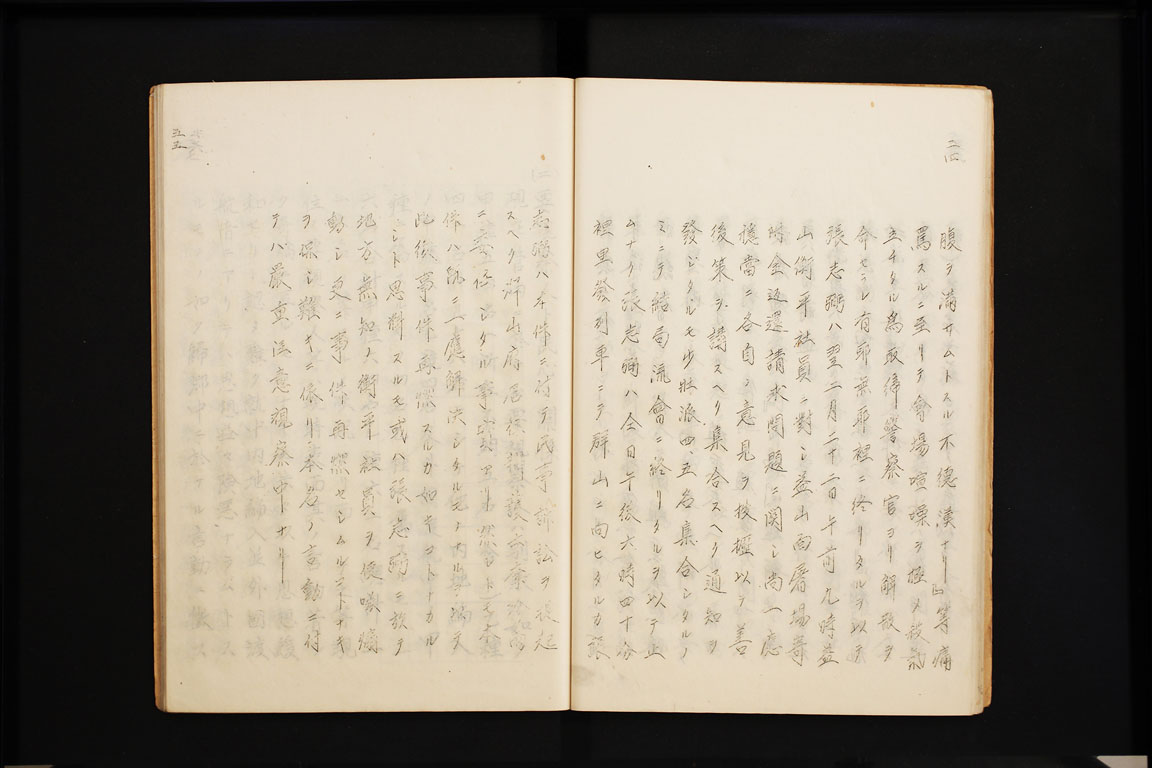 腹ヲ滿サムトスル不德漢ナリ』等痛
罵スルニ至リテ會場喧噪ヲ極メ殺氣
立チタル為取締警察官ヨリ解散ヲ
命セラレ有耶無耶裡ニ終リタルヲ以テ
張志弼ハ翌二月二十二日午前九時益
山衡平社員ニ對シ益山面屠場寄
附金返還請求問題ニ関シ尚一應
穏當ニ各自ノ意見ヲ披攊以テ善
後策ヲ講スヘク集合スヘク通知ヲ
發シタルモ少壯派四、五名集合シタルノ
ミニテ結局流會ニ終リタルヲ以テ止
ムナク張志弼ハ仝日午後六時四十分
裡里發列車ニテ群山ニ向ヒタルカ張
志弼ハ本件ニ付テ民事訴訟ヲ提起
スヘク
ニ委任シタ
件ハ既ニ一應解決シタルモノナルヲ
此後事件再燃スルカ如キコトナカル
ヘシト思料スルモ或ハ張志弼ニ於テ
地方無知ノ衡平社員ヲ使嗾煽
動シ更ニ事件再燃セシムルコトナキ
ヲ保シ難キニ依リ本名ノ言動ニ付
テハ嚴重注意視察中ナリ
二四
五五